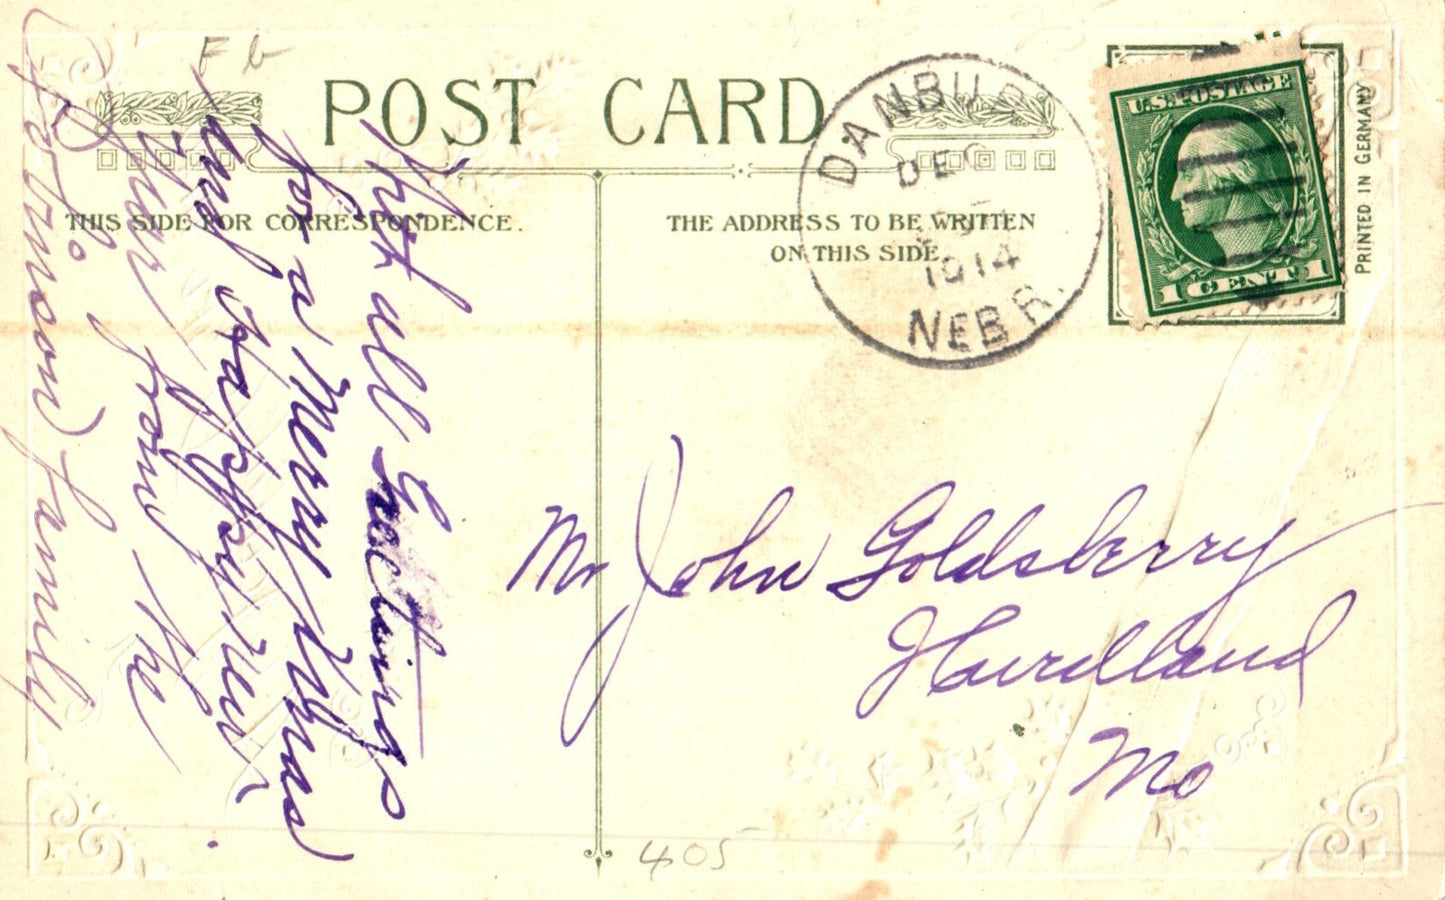 F b
POST CARD
THIS SIDE FOR CORRESPONDENCE.
THE ADDRESS TO BE WRITTEN
ON THIS SIDE.
DANBURY
DEC
1914
NEBR.
U.S. POSTAGE
1 CENT 1
PRINTED IN GERMANY
With all Greetings
for a Merry Xmas
and Happy New
Year from the
family
Mr John Goldsberry
Hurdland
Mo
405